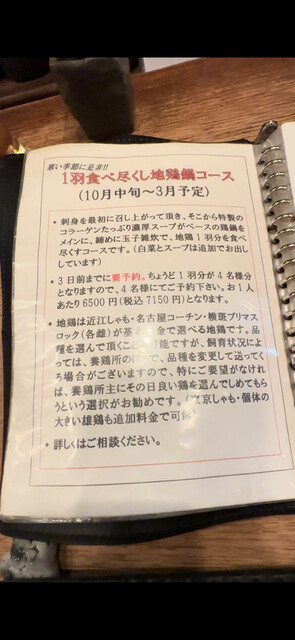 寒い季節に是非!!
1羽食べ尽くし地鶏鍋コース
(10月中旬～3月予定)
・刺身を最初に召し上がって頂き、そこから特製の
コラーゲンたっぷり濃厚スープがベースの鶏鍋を
メインに、締めに玉子雑炊で、地鶏1羽分を食べ
尽くすコースです。(白菜とスープは追加でお出し
しています)
・3日前までに要予約。ちょうど1羽分が4名様分
となりますので、4名様にてご予約下さい。お1人
あたり6500円(税込7150円)となります。
・地鶏は近江しゃも・名古屋コーチン・横斑プリマス
ロック(各雌)が基本 金で選べる地鶏です。品
種を選んで頂くこと 可能ですが、飼育状況によ
っては、養鶏所の で、品種を変更して送ってく
る場合がございますので、特にご要望がなけれ
ば、養鶏所主にその日良い鶏を選んでしめてもら
うという選択がお勧めです。( 京しゃも・個体の
大きい雄鶏も追加料金で可
・詳しくはご相談ください。